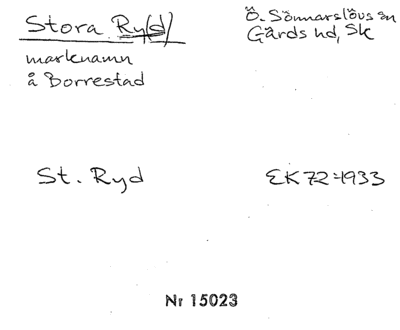 Stora Ry(d)
Ö. Sönnarslövs sn
Gärds hd, Sk
marknamn
å Borrestad
St. Ryd
EK 72 1933
Nr 15023